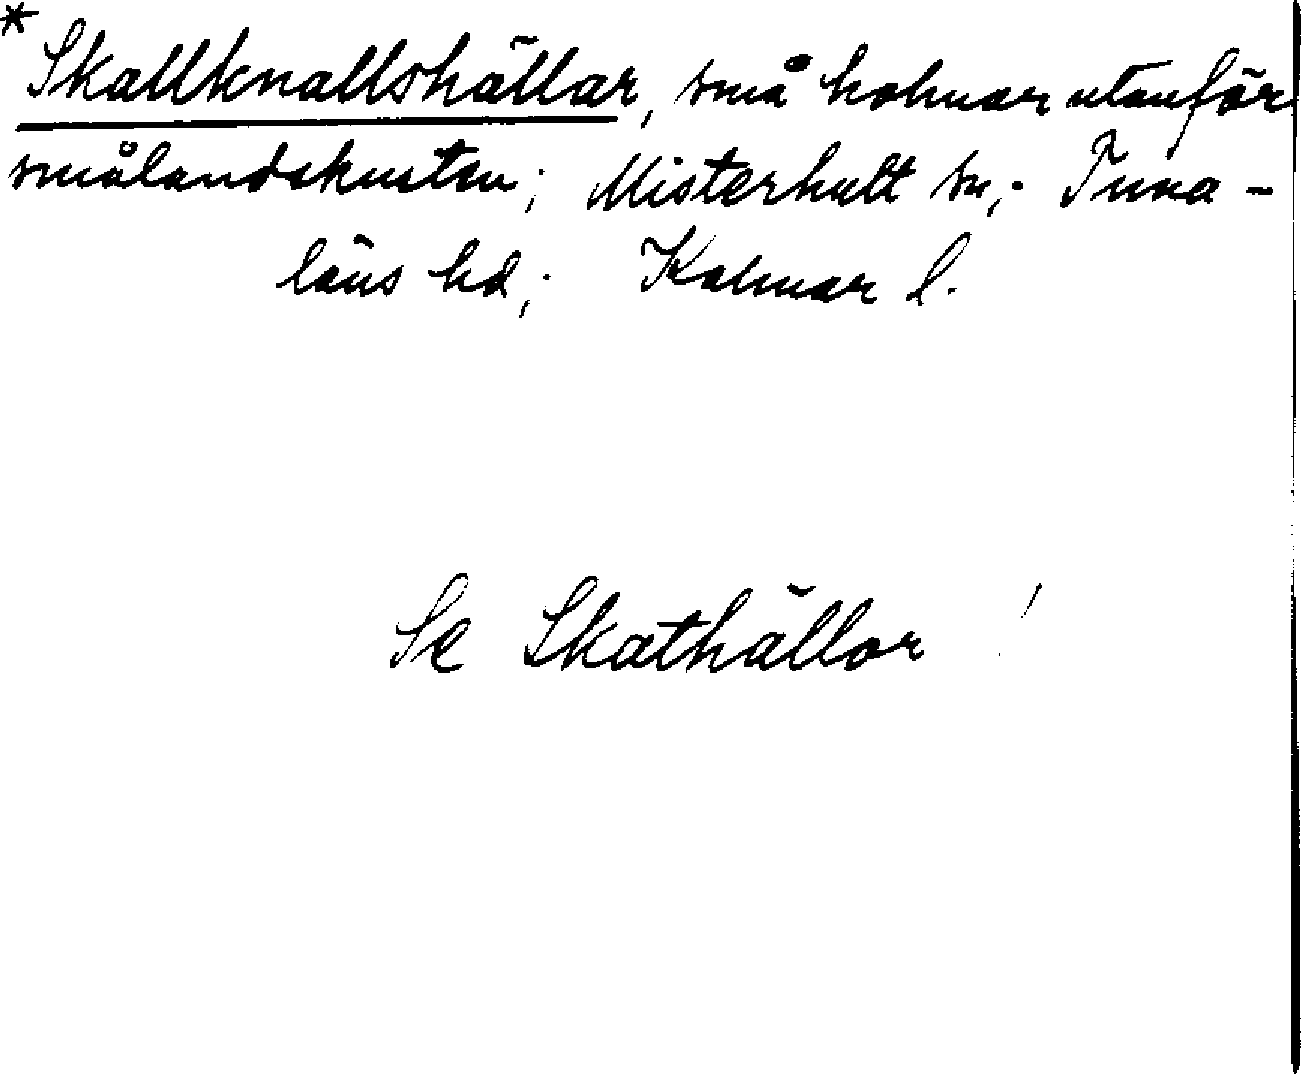 * Skallknallshällar, små holmar utanför
smålandskusten; Misterhult sn; Tuna-
läns hd; Kalmar l.
Se Skathällor !